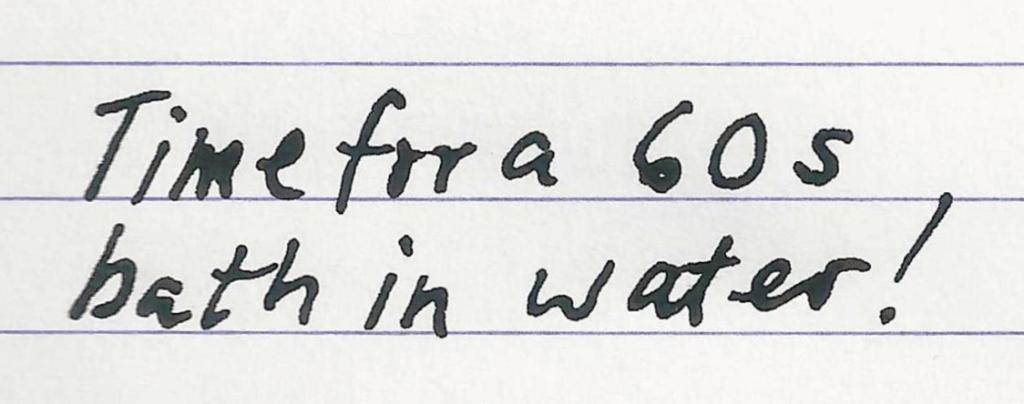 Time for a 60s
bath in water!